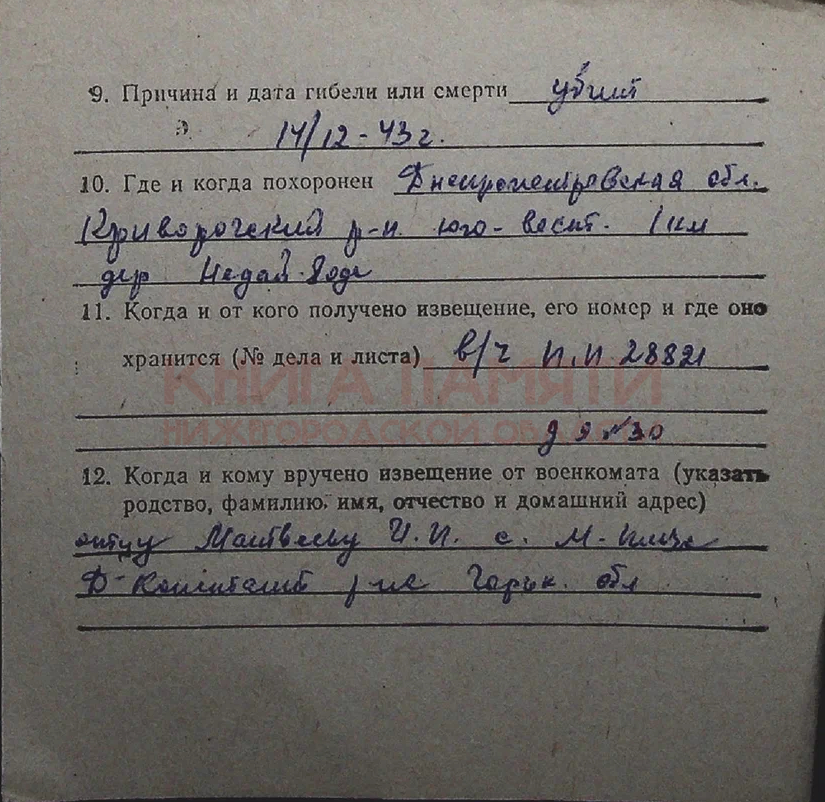 9. Причина и дата гибели или смерти убит
14/12-43 г.
10. Где и когда похоронен Днепропетровская обл.
Криворогский р-н юго-вост. 1 км
дер Недай-Вода
11. Когда и от кого получено извещение, его номер и где оно
хранится (№ дела и листа) в/ч п.п. 28821
КНИГА ПАМЯТИ
НИЖЕГОРОДСКОЙ ОБЛАСТИ
д 9 №30
12. Когда и кому вручено извещение от военкомата (указать
родство, фамилию, имя, отчество и домашний адрес)
отцу Матвееву И.И. с.
Д-Константи р-на Горьк. обл